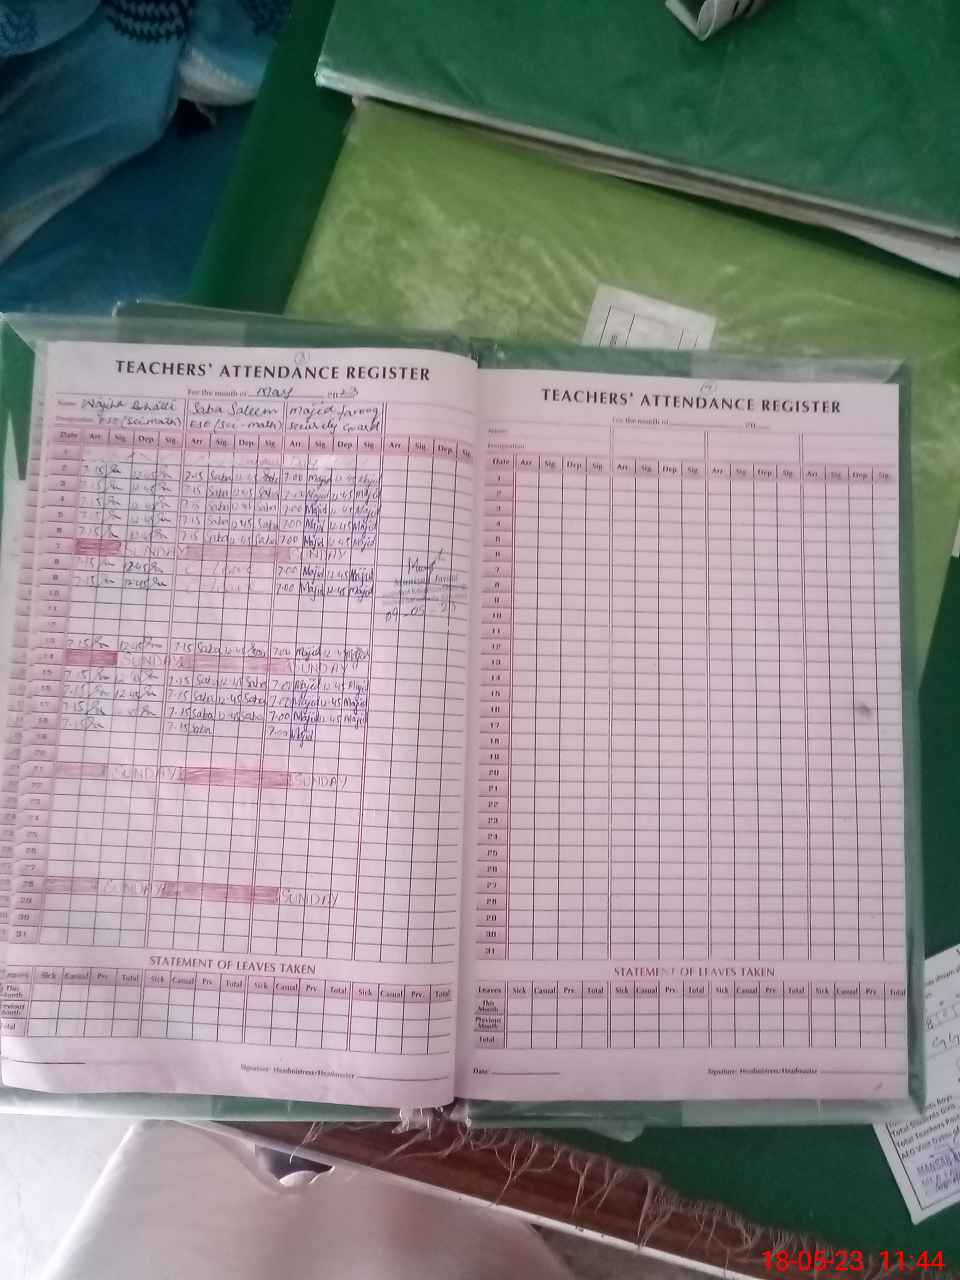 TEACHERS' ATTENDANCE REGISTER
For the month of May 20 23
Name Saba Saleem Majid farooq
Designation ESE (sci-math) ESE (sci-math) security Guard
Date Arr Sig. Dep. Sig. Arr. Sig. Dep. Sig. Arr. Sig. Dep. Sig. Arr. Sig. Dep. Sig.
1
2 7.15 12.45 7.15 Saba 12.45 Saba 7.00 Majid 12.45 Majid
3 7.15 12.45 7.15 Saba 12.45 Saba 7.00 Majid 12.45 Majid
4 7.15 12.45 7.15 Saba 12.45 Saba 7.00 Majid 12.45 Majid
5 7.15 12.45 7.15 Saba 12.45 Saba 7.00 Majid 12.45 Majid
6 7.15 12.45 7.15 Saba 12.45 Saba 7.00 Majid 12.45 Majid
7 SUNDAY SUNDAY
8 7.15 12.45 7.00 Majid 12.45 Majid
9 7.15 12.45 7.00 Majid 12.45 Majid
10
11
09-05-23
12
13 7.15 12.45 7.15 Saba 12.45 Saba 7.00 Majid 12.45 Majid
14 SUNDAY SUNDAY
15 7.15 12.45 7.15 Saba 12.45 Saba 7.00 Majid 12.45 Majid
16 7.15 12.45 7.15 Saba 12.45 Saba 7.00 Majid 12.45 Majid
17 7.15 7.15 Saba 12.45 Saba 7.00 Majid 12.45 Majid
18 7.15 7.15 Saba 7.00 Majid
19
20
21 SUNDAY SUNDAY
22
23
24
25
26
27
28 SUNDAY SUNDAY
29
30
31
STATEMENT OF LEAVES TAKEN
Leaves Sick Casual Prv. Total Sick Casual Prv. Total Sick Casual Prv. Total Sick Casual Prv. Total
This Month
Previous Month
Total
Signature: Headmistress/Headmaster
TEACHERS' ATTENDANCE REGISTER
For the month of 20
Name:
Designation:
Date Arr. Sig. Dep. Sig. Arr. Sig. Dep. Sig. Arr. Sig. Dep. Sig. Arr. Sig. Dep. Sig.
1
2
3
4
5
6
7
8
9
10
11
12
13
14
15
16
17
18
19
20
21
22
23
24
25
26
27
28
29
30
31
STATEMENT OF LEAVES TAKEN
Leaves Sick Casual Prv. Total Sick Casual Prv. Total Sick Casual Prv. Total Sick Casual Prv. Total
This Month
Previous Month
Total
Date: Signature: Headmistress/Headmaster
Boys
Total Students
Total Teachers
AEO Visit Dates
18-05-23 11:44